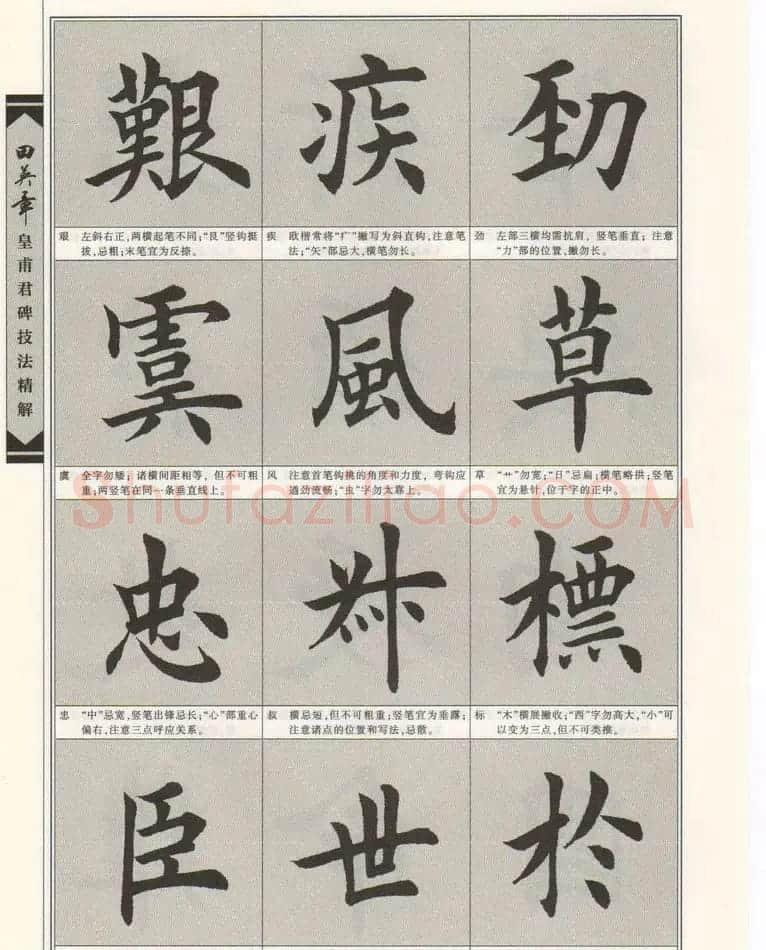 田英章皇甫君碑技法精解
勁
劲 左部三横均需抗肩，竖笔垂直；注意
“力”部的位置，撇勿长。
草
草 “艹”勿宽；“日”忌扁；横笔略拱；竖笔
宜为悬针，位于字的正中。
標
标 “木”横展撇收；“西”字勿高大，“小”可
以变为三点，但不可类推。
於
疾
疾 欧楷常将“疒”撇写为斜直钩，注意笔
法；“矢”部忌大，横笔勿长。
風
风 注意首笔钩挑的角度和力度，弯钩应
遒劲流畅；“虫”字勿太靠上。
叔
叔 横忌短，但不可粗重；竖笔宜为垂露；
注意诸点的位置和写法，忌散。
世
艱
艰 左斜右正，两横起笔不同；“艮”竖钩挺
拔，忌粗；末笔宜为反捺。
虞
虞 全字勿矮；诸横间距相等，但不可粗
重；两竖笔在同一条垂直线上。
忠
忠 “中”忌宽，竖笔出锋忌长；“心”部重心
偏右，注意三点呼应关系。
臣
shufaziliao.COM